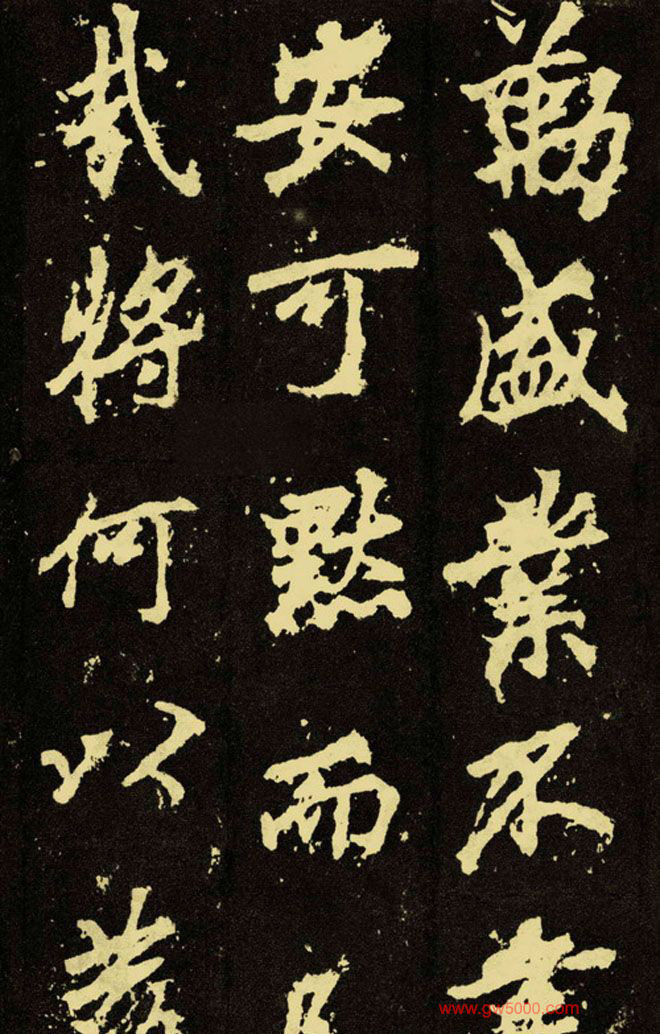 勳盛業不
安可默而
我將何以
www.gw5000.com